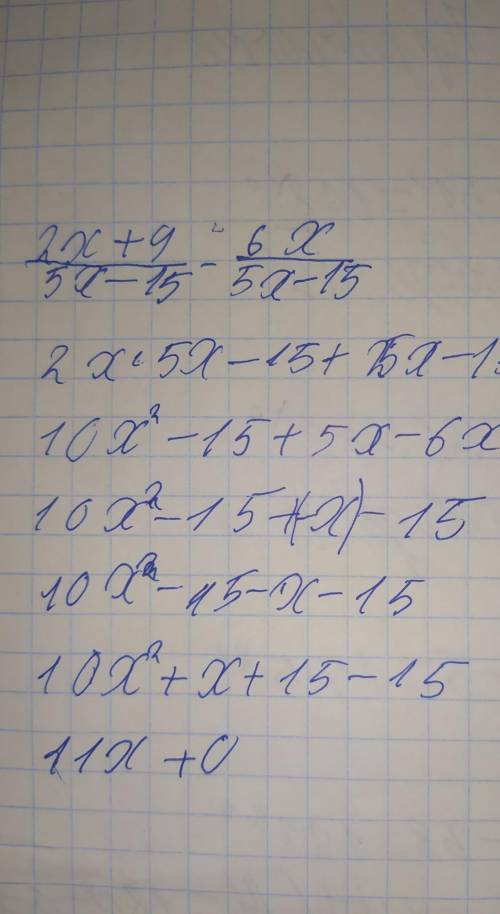 2x+9 / 5x-15 - 6x / 5x-15
2x·5x-15+5x-15
10x²-15+5x-6x
10x²-15+(-x)-15
10x²-15-x-15
10x²+x+15-15
11x+0